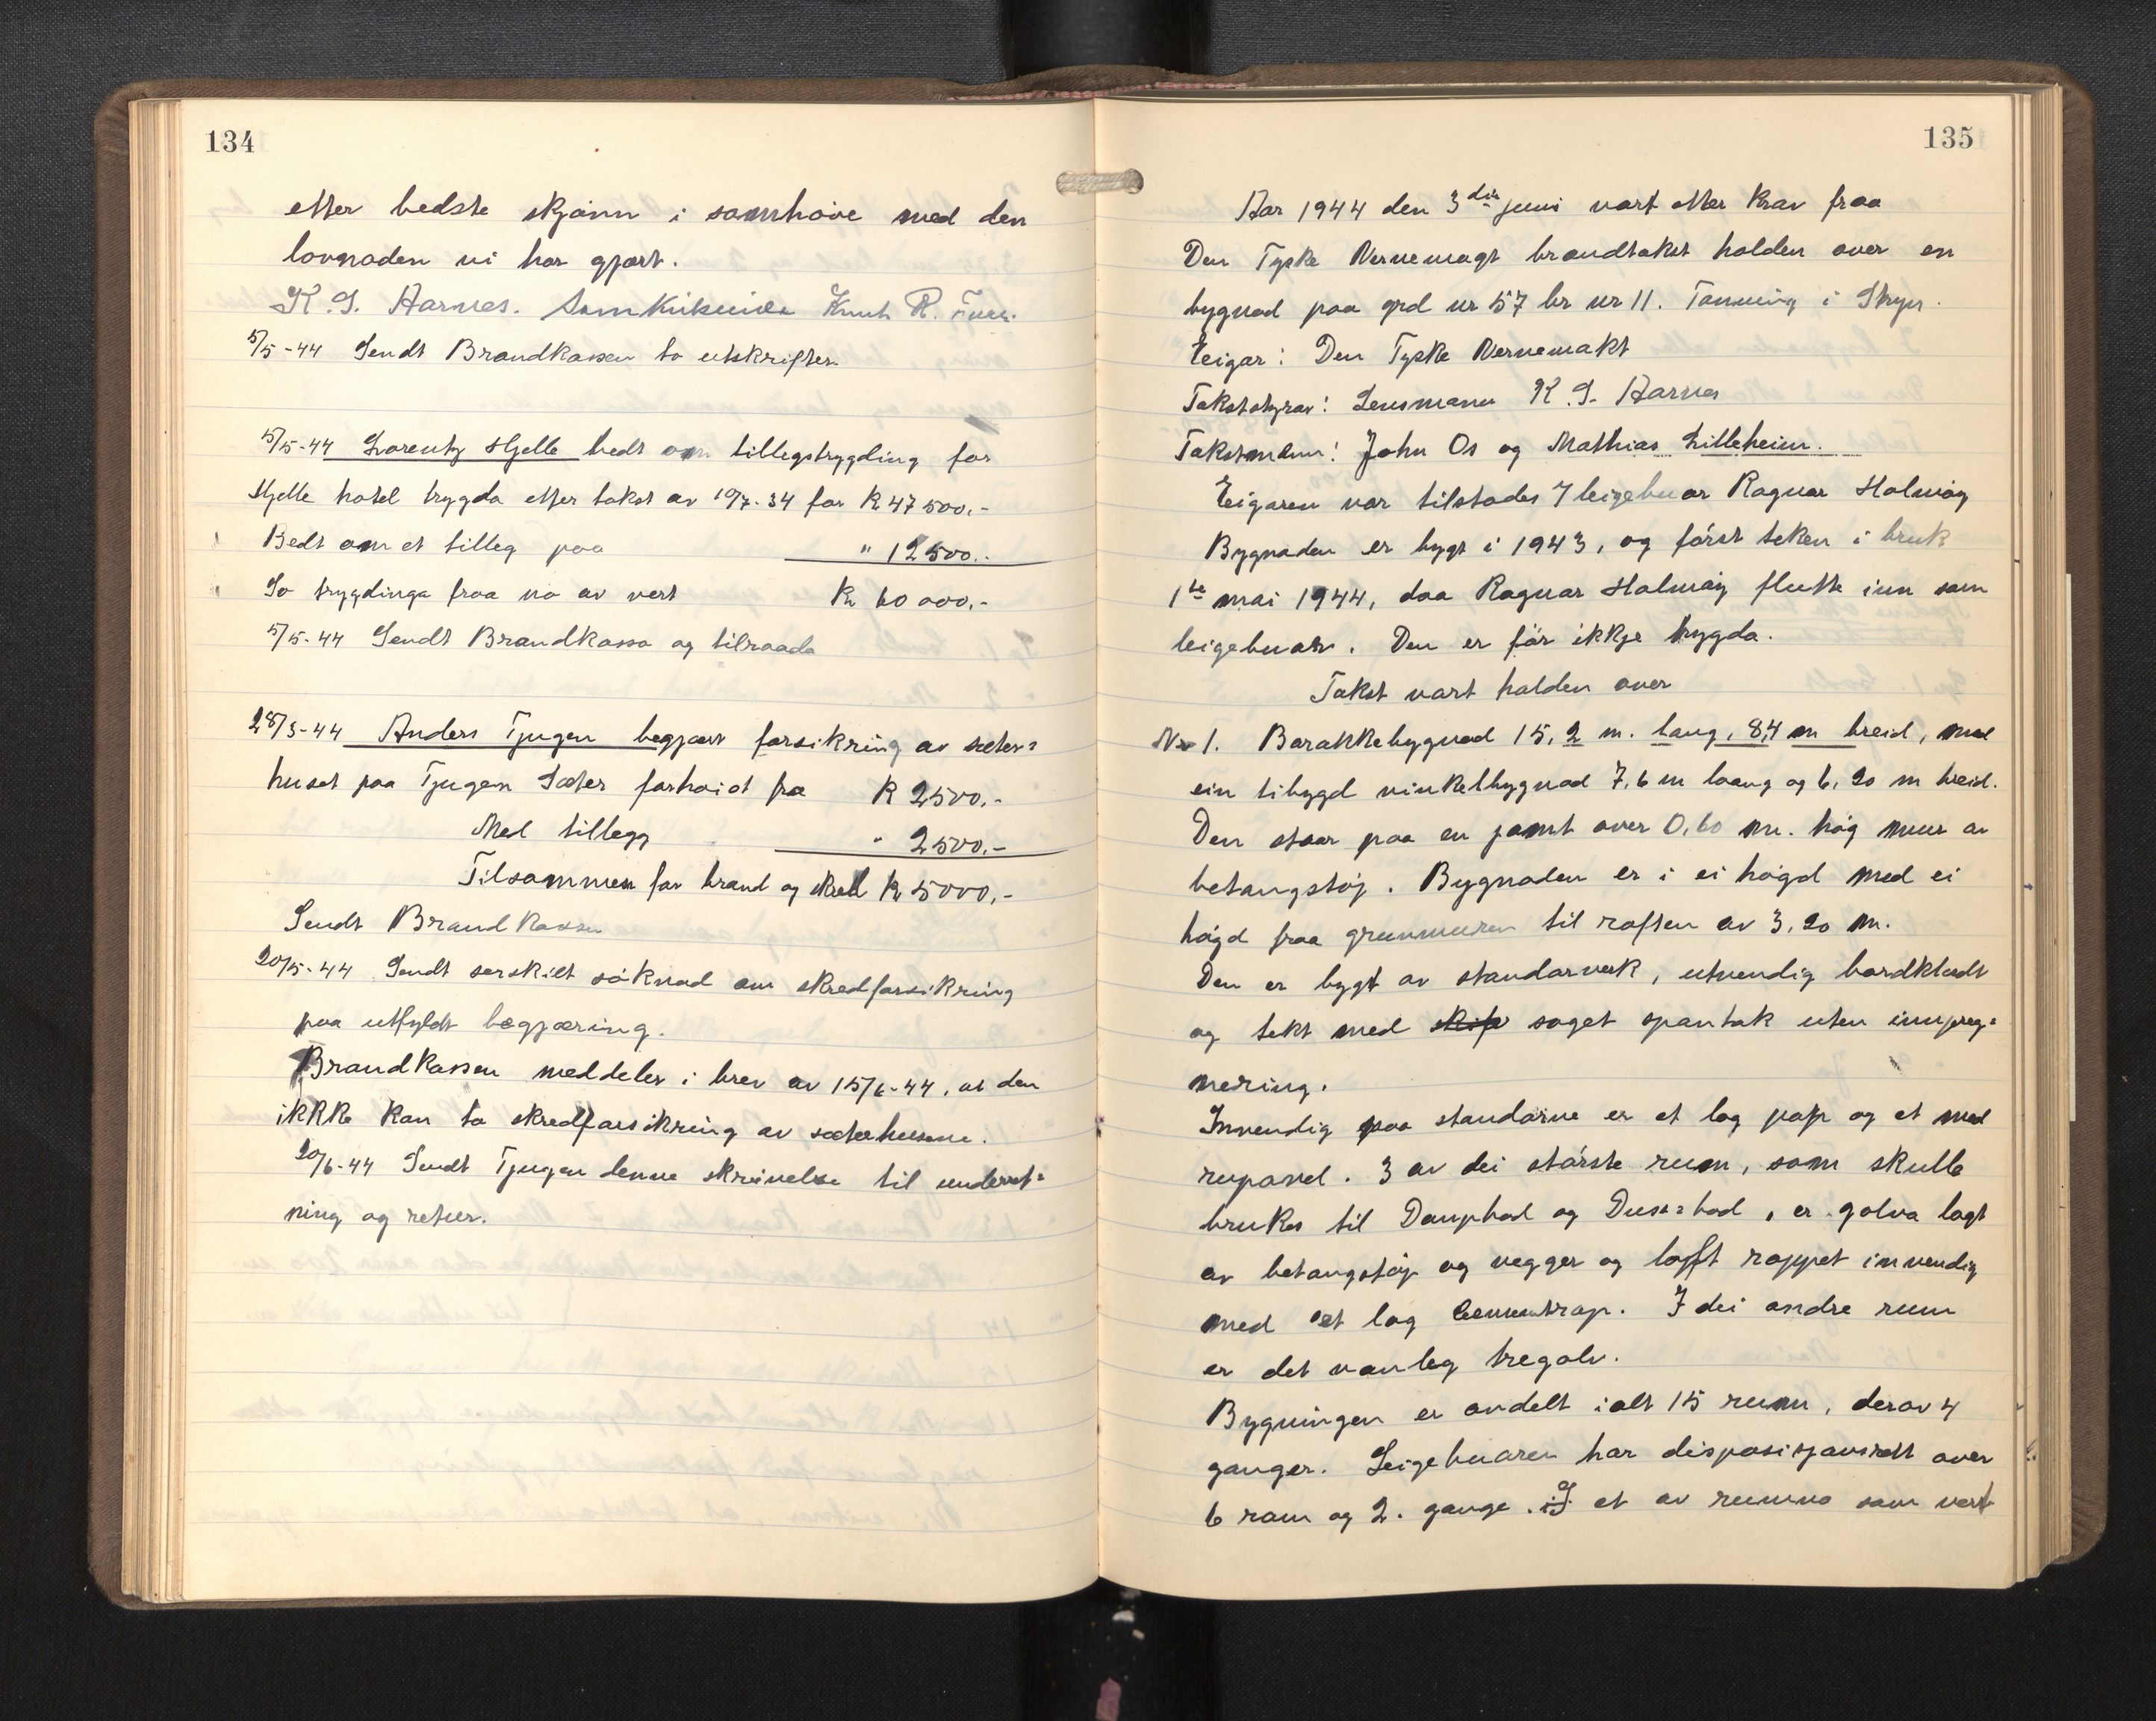 134
etter bedste skjønn i samhøve med den
lovnaden vi har gjort.
K. S. Aarnes. Knut R.
5/5-44 Sendt Brandkassen to utskrifter.
5/5-44 Lorentz Hjelle bedt om tillegstrygding for
Hjelle hotel trygda etter takst av 19/7-34 for Kr 47500.-
Bedt om et tilleg paa " 12500.-
So trygdinga fraa no av vert Kr 60000.-
5/5-44 Sendt Brandkassa og tilraada
28/3-44 Anders Tjugen begjært forsikring av sæter=
huset paa Tjugen Sæter forhøid fra Kr 2500.-
Med tillegg " 2500.-
Tilsammen for brand og skred Kr 5000.-
Sendt Brandkassen
20/5-44 Sendt serskilt søknad om skredforsikring
paa utfyldt begjæring.
Brandkassen meddeler i brev av 15/6-44, at den
ikke kan ta skredforsikring av sæterhusene.
20/6-44 Sendt Tjugen denne skrivelse til underret=
ning og retur.
135
Aar 1944 den 3die juni vart etter krav fraa
Den Tyske Vernemagt brandtakst holden over en
bygnad paa grd nr 57 br nr 11. Tonning i Stryn.
Eigar: Den Tyske Vernemakt
Takststyrar: Lensmann K. S. Aarnes
Takstmenn: John Os og Mathias Lilleheim.
Eigaren var tilstades / leigebuar Ragnar Holmøy
Bygnaden er bygt i 1943, og først teken i bruk
1ste mai 1944, daa Ragnar Holmøy flutte inn som
leigebuar. Den er før ikkje trygda.
Takst vart halden over
Nr 1. Barakkebygnad 15,2 m. lang, 8,4 m breid, med
ein tibygd vinkelbygnad 7,6 m laang og 6,20 m breid.
Den staar paa en jamt over 0,60 m. høg mur av
betongstøp. Bygnaden er i ei høgd med ei
høgd fraa grunnmuren til røften av 3,20 m.
Den er bygt av standarverk, utvendig bordklædt
og tekt med soget spontak uten impreg=
nering.
Innvendig paa standarne er et lag papp og et med
rupanel. 3 av dei største rum, som skulle
brukes til Dampbad og Dusj=bad, er golva lagt
av betongstøp og vegger og loft rappet innvendig
med et lag Cementrap. I dei andre rum
er det vanleg tregolv.
Bygningen er ondelt ialt 15 rumm, derav 4
ganger. Leigebuaren har disposisjonsrett over
6 rom og 2. gange. I et av rumma som vert